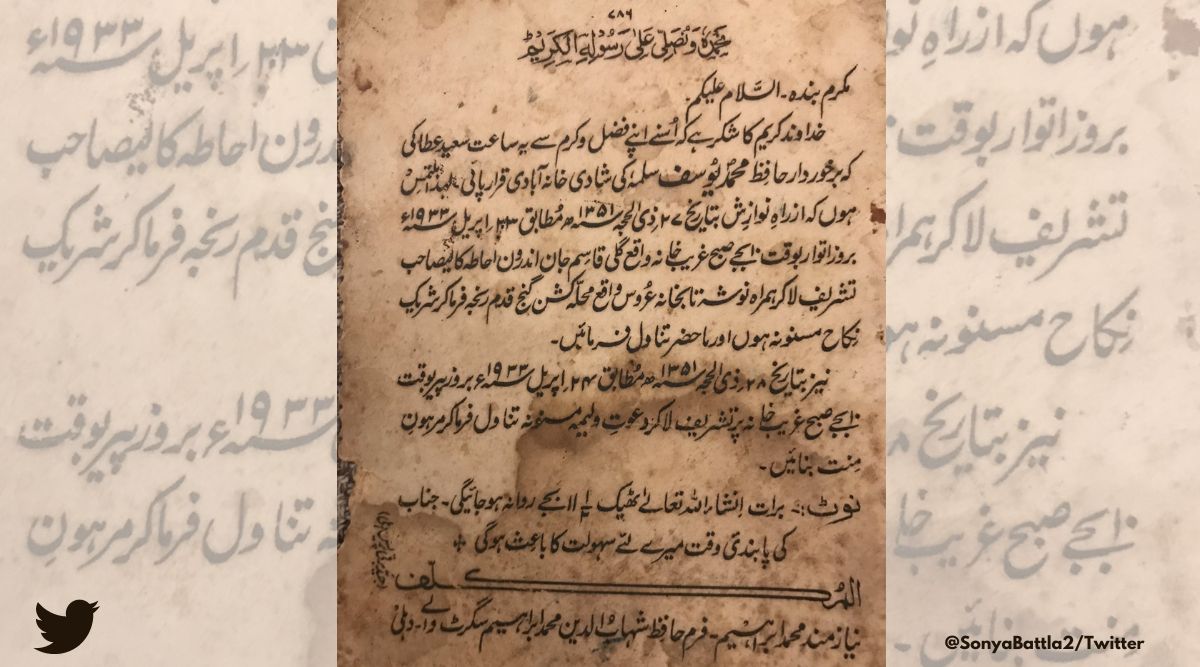 ۷۸۶
نحمدہ و نصلی علیٰ رسولہ الکریم
مکرم بندہ۔ السّلام علیکم
خداوند کریم کا شکر ہے کہ اُسنے اپنے فضل و کرم سے یہ ساعت سعید عطا کی
کہ برخوردار حافظ محمد یوسف سلمہٗ کی شادی خانہ آبادی قرار پائی لہذا ملتمس
ہوں کہ از راہِ نوازش بتاریخ ۲۷ ذی الحجہ سنہ ۱۳۵۱ھ مُطابق ۲۳ اپریل سنہ ۱۹۳۳ء
بروز اتوار بوقت ۱۰ بجے صبح غریب خانہ واقع گلی قاسم جان اندرون احاطہ کالیصاحب
تشریف لاکر ہمراہ نوشہ تا بخانہ عُروس واقع محلہ کشن گنج قدم رنجہ فرماکر شریک
نِکاح مسنونہ ہوں اور ماحضر تناول فرمائیں۔
نیز بتاریخ ۲۸ ذی الحجہ سنہ ۱۳۵۱ھ مُطابق ۲۴ اپریل سنہ ۱۹۳۳ء بروز پیر بوقت
۱۰ بجے صبح غریب خانہ پر تشریف لاکر دعوتِ ولیمہ مسنونہ تناول فرماکر مرہونِ
مِنت بنائیں۔
نوٹ:۔ برات انشاء اللہ تعالےٰ ٹھیک ۱۱ بجے روانہ ہوجائیگی۔ جناب
کی پابندی وقت میرے لئے سہولت کا باعث ہوگی
المکلف
نیازمند محمد ابراہیم۔ فرم حافظ شہاب الدین محمد ابراہیم سگرٹ والے۔ دہلی
@SonyaBattla2/Twitter